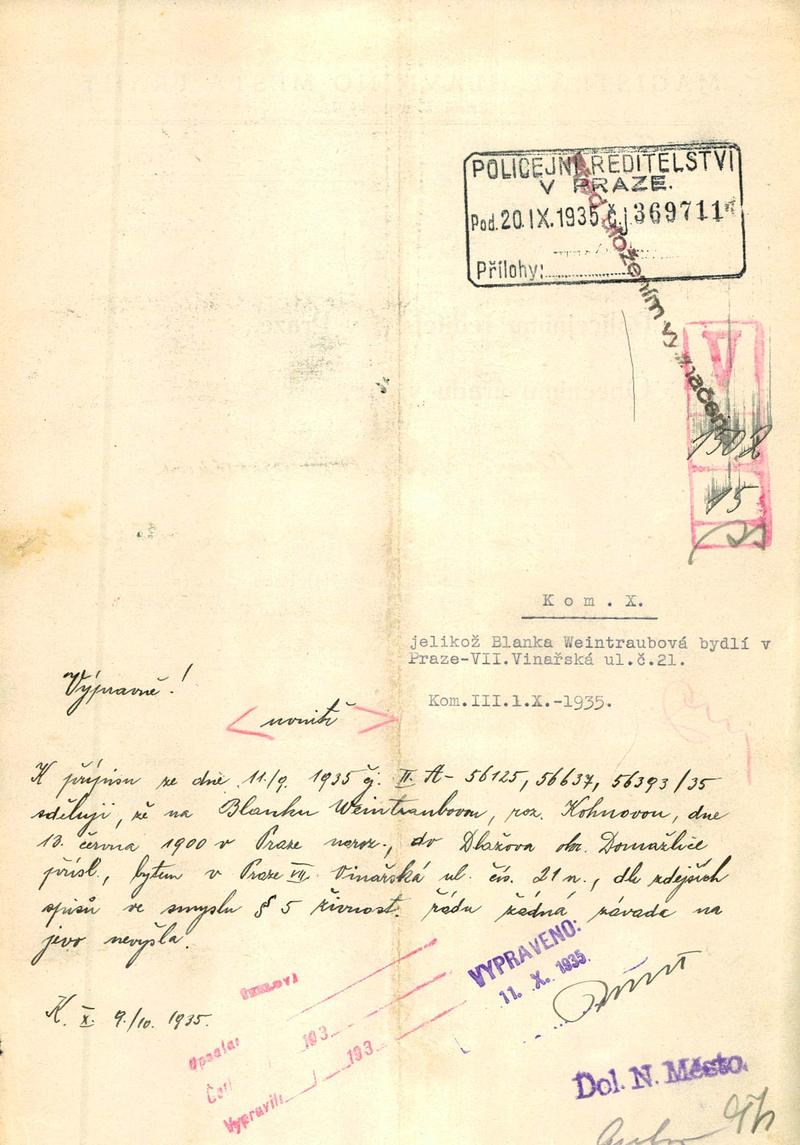 POLICEJNÍ ŘEDITELSTVÍ
V PRAZE.
Pod. 20.IX.1935 č.j. 369711
Přílohy:
Před uložením vyznačeno
V
1502
15
Kom. X.
jelikož Blanka Weintraubová bydlí v
Praze-VII.Vinařská ul.č.21.
Kom.III.1.X.-1935.
Výpravně!
< uvnitř >
K přípisu ze dne 11./9. 1935 čj. II. A- 56125, 56637, 56393/35
sděluji, že na Blanku Weintraubovou, roz. Kohnovou, dne
13. června 1900 v Praze naroz., do Dlažova okr. Domažlice
přísl., bytem v Praze VII. Vinařská ul. čís. 21 n., dle zdejších
spisů ve smyslu § 5 živnost. řádu žádná závada na
jevo nevyšla.
K. X. 9./10. 1935.
VYPRAVENO:
11. X. 1935.
Opsala:
193
Četl
193
Vypravil:
Dol. N. Město.